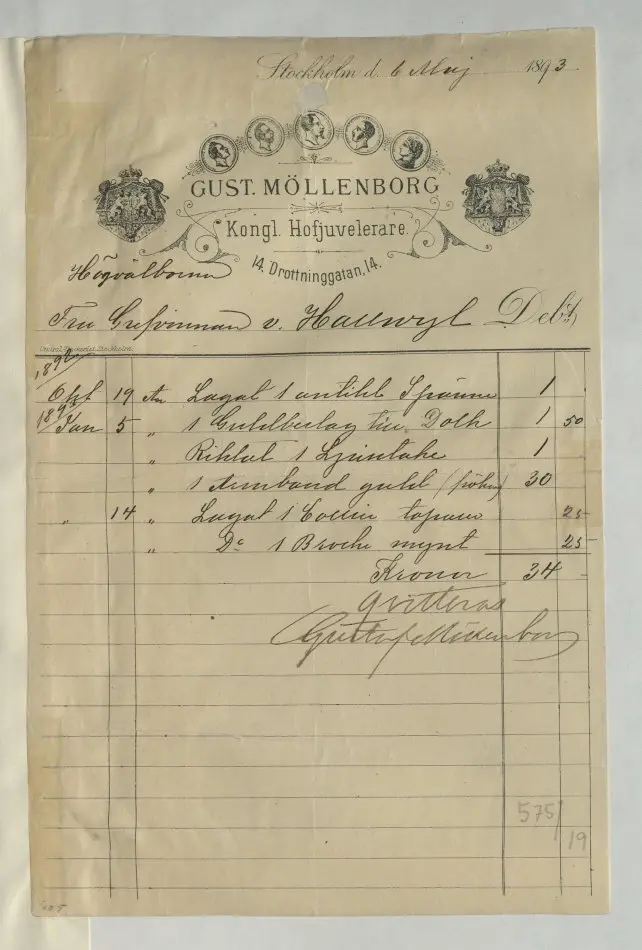 Stockholm d. 6 Maj 1893
GUST. MÖLLENBORG
Kongl. Hofjuvelerare.
14. Drottninggatan, 14.
Högvälborna
Fru Grefvinnan v. Hallwyl Debt
Central-Tryckeriet, Stockholm.
1892
Okt 19 An Lagat 1 antikt Spänne 1
189
Jan 5 „ 1 Guldbeslag till Dolk 1 50
„ Riktat 1 Ljustake 1
„ 1 Armband guld 30
„ 14 „ Lagat 1 Collier topaser 25
„ Do 1 Broche mynt 25
Kronor 34 -
Qvitteras
Gustaf Möllenborg
575/
19